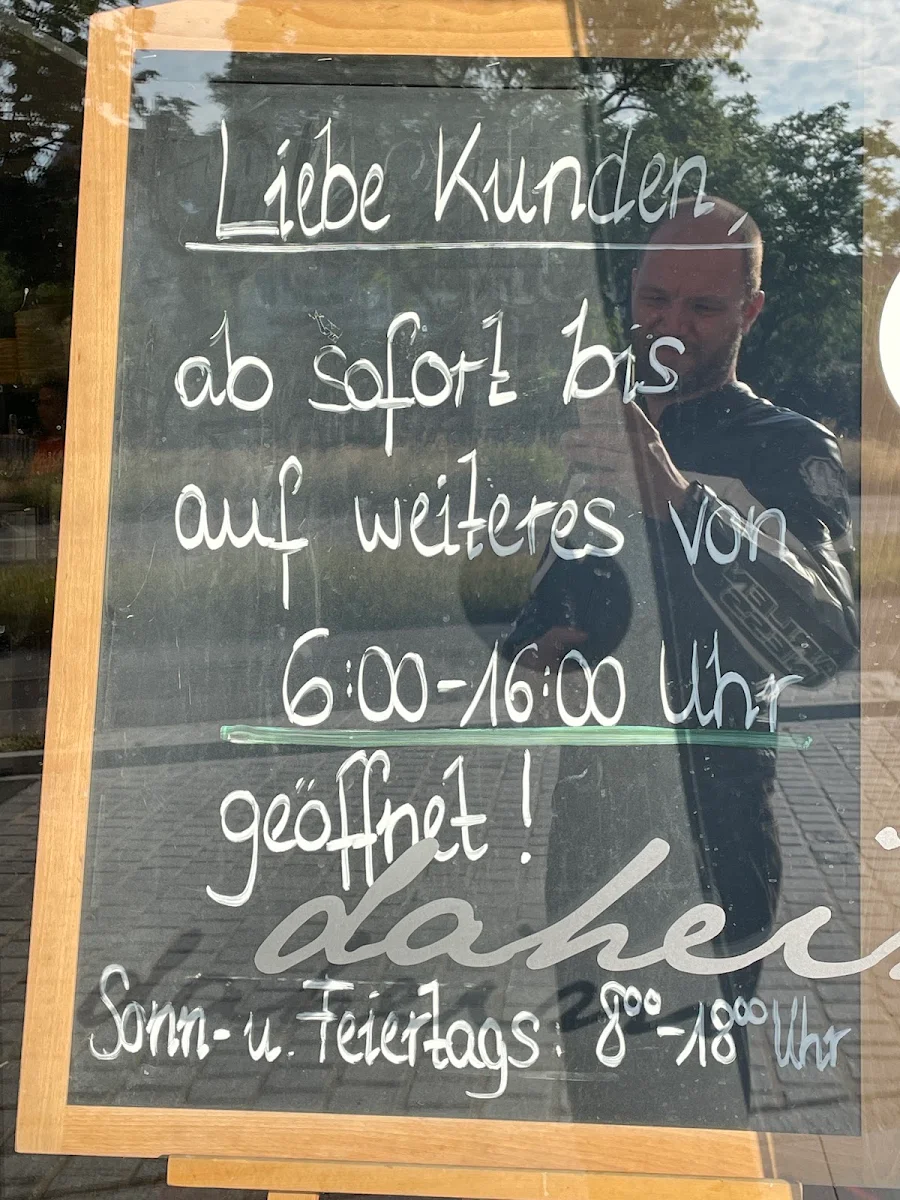 Liebe Kunden,
ab sofort bis
auf weiteres von
6:00-16:00 Uhr
geöffnet!
Sonn- u. Feiertags: 8⁰⁰-18⁰⁰ Uhr